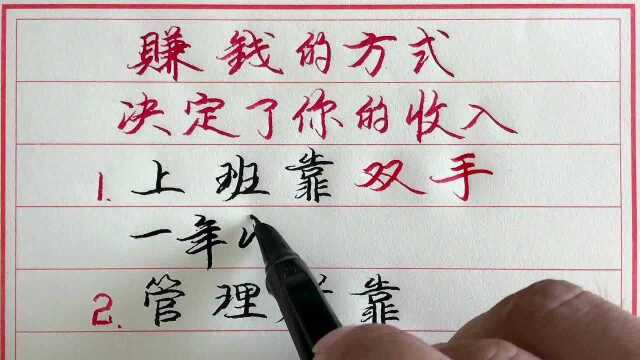 賺钱的方式
决定了你的收入
1. 上班靠双手
一年
2. 管理 靠